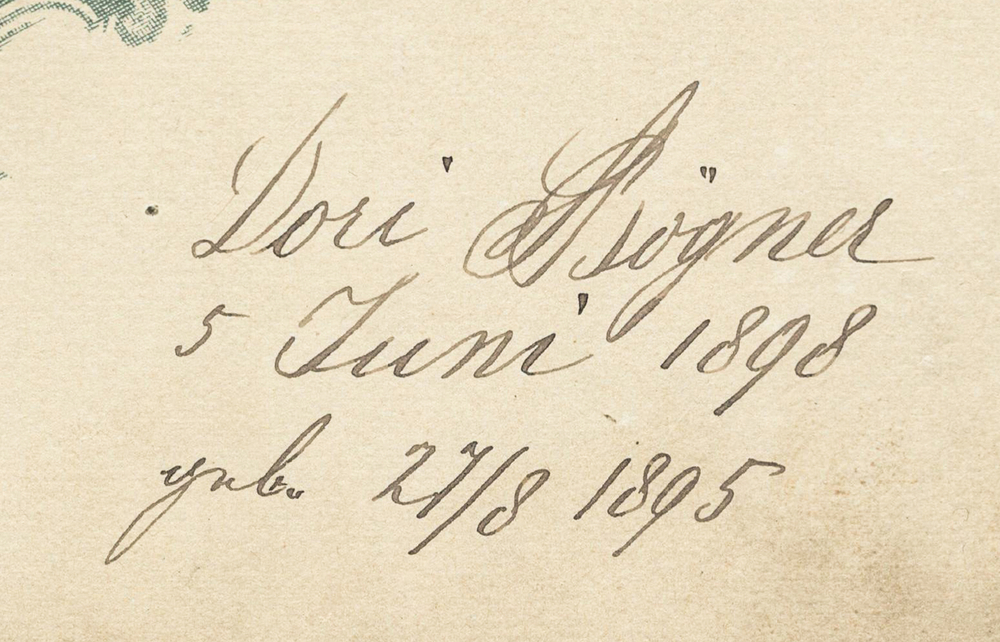 Dori Brögner
5 Juni 1898
geb. 27/8 1895